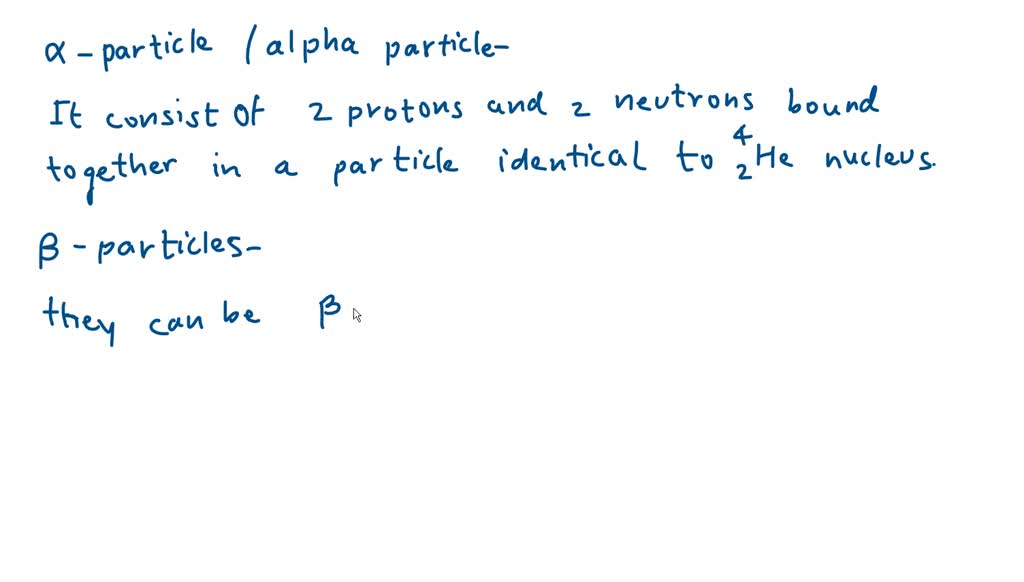 α - particle / alpha particle-
It consist of 2 protons and 2 neutrons bound
together in a particle identical to ⁴₂He nucleus.
β - particles-
they can be β